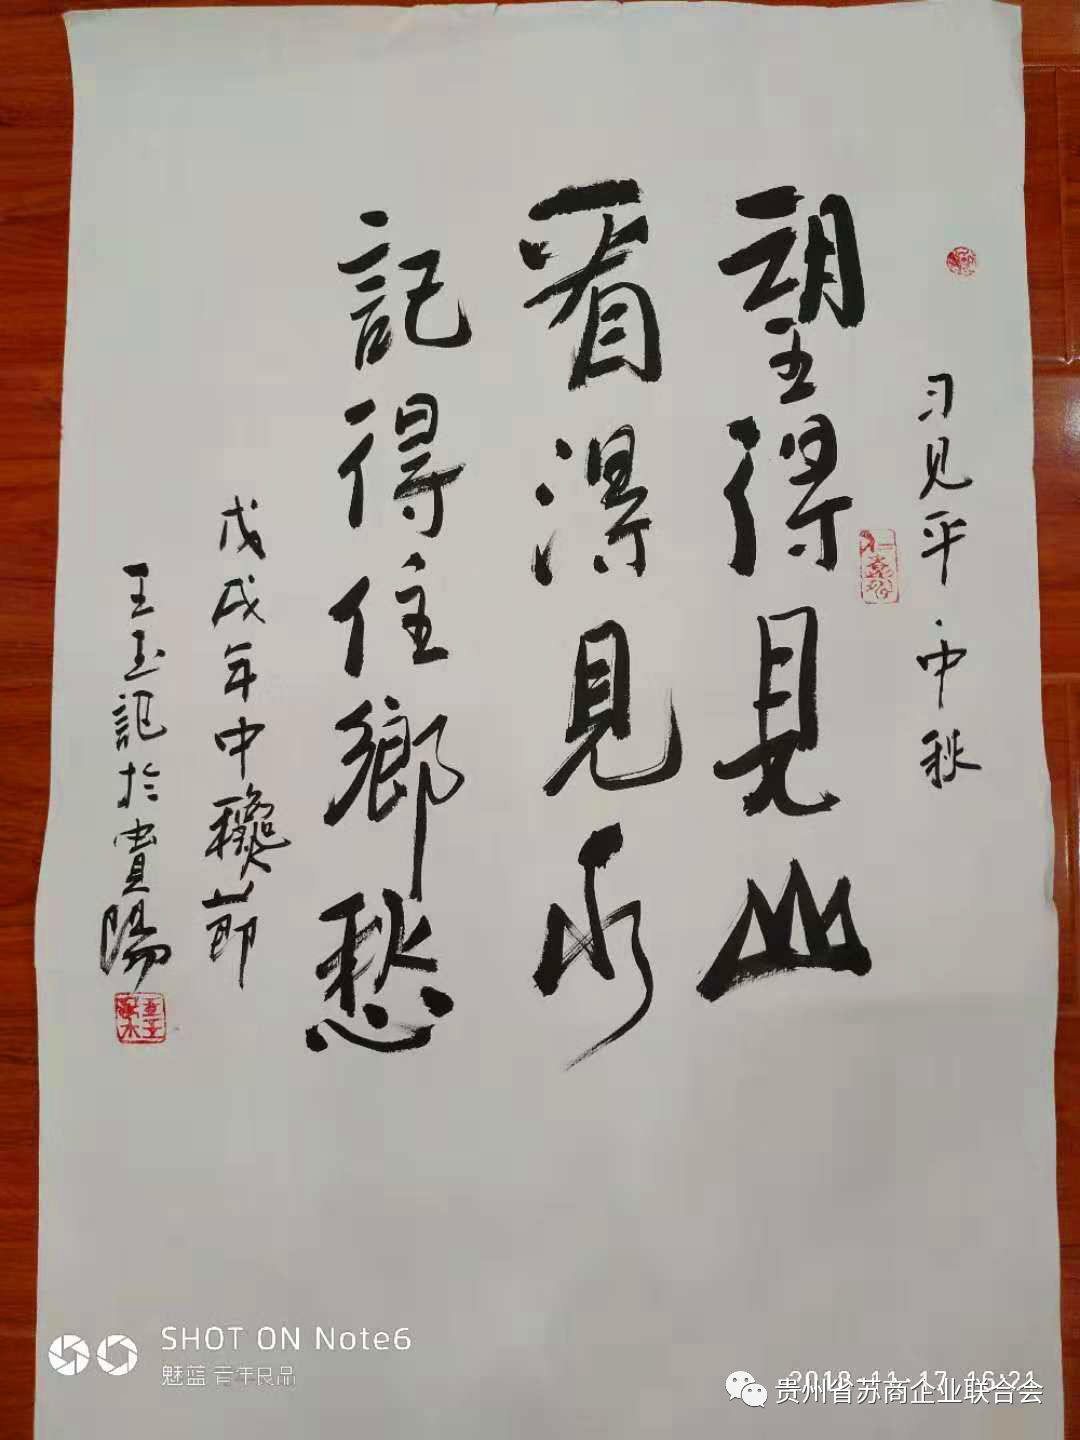 习见平·中秋
望得見山
看得見水
記得住鄉愁
戊戌年中龝節
王玉記於貴陽
SHOT ON Note6
魅蓝 青年良品
2018-11-17 16:21
贵州省苏商企业联合会